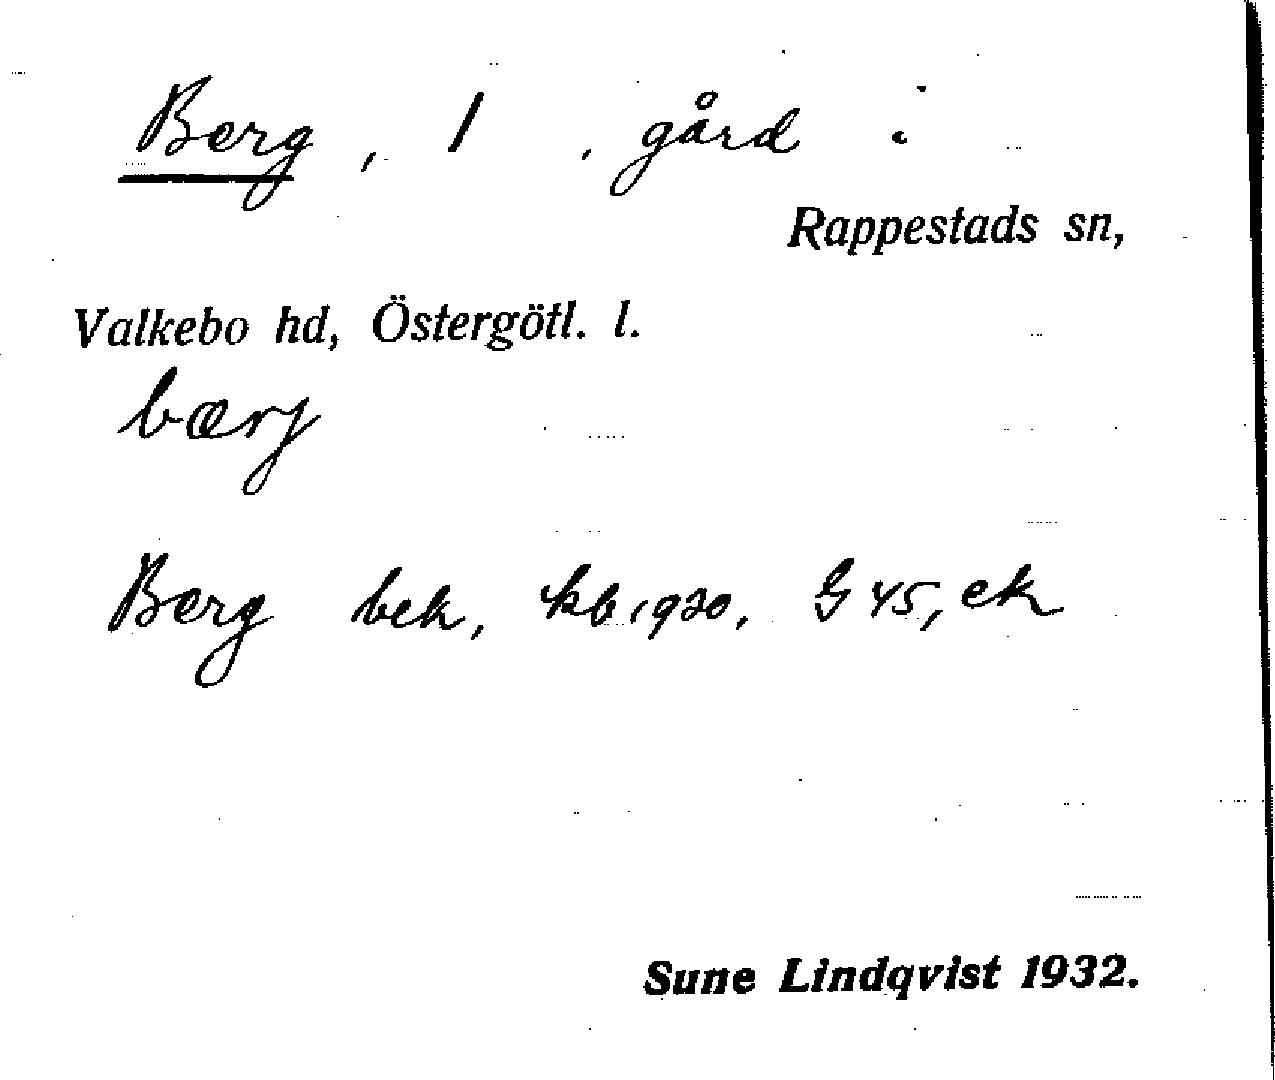 Berg, 1, gård i
Rappestads sn,
Valkebo hd, Östergötl. l.
bærj
Berg bek, kb 1920, G 45, ek
Sune Lindqvist 1932.